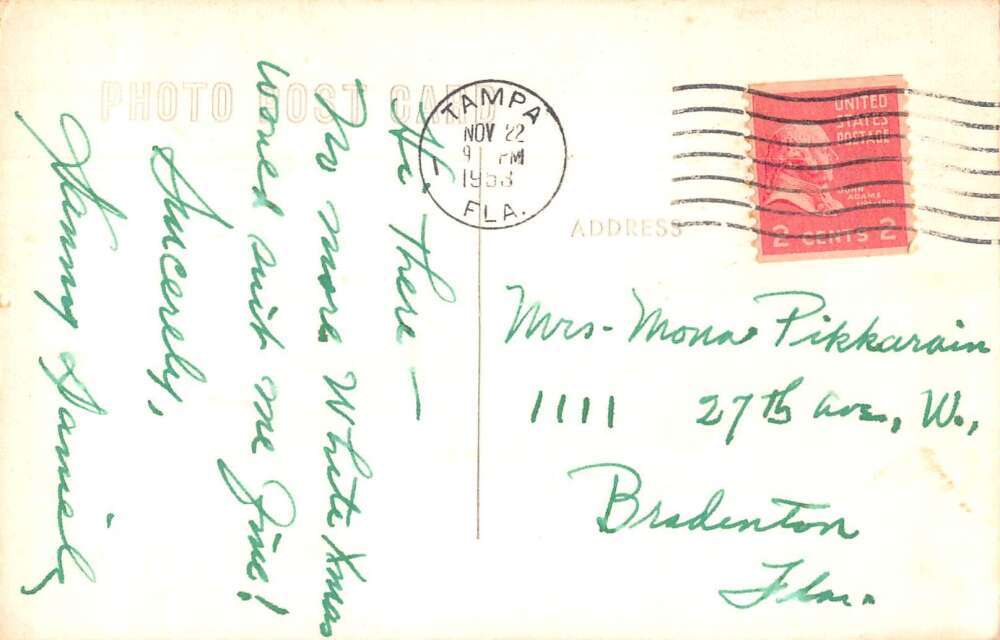 PHOTO POST CARD
TAMPA
NOV 22
9 PM
1953
FLA.
UNITED
STATES
POSTAGE
JOHN
ADAMS
2 CENTS 2
ADDRESS
Hi, There —
No more White Xmas
would suit me fine!
Sincerely,
Daniels
Mrs- Mona Pikkarain
1111 27th ave, W.,
Bradenton
Fla.